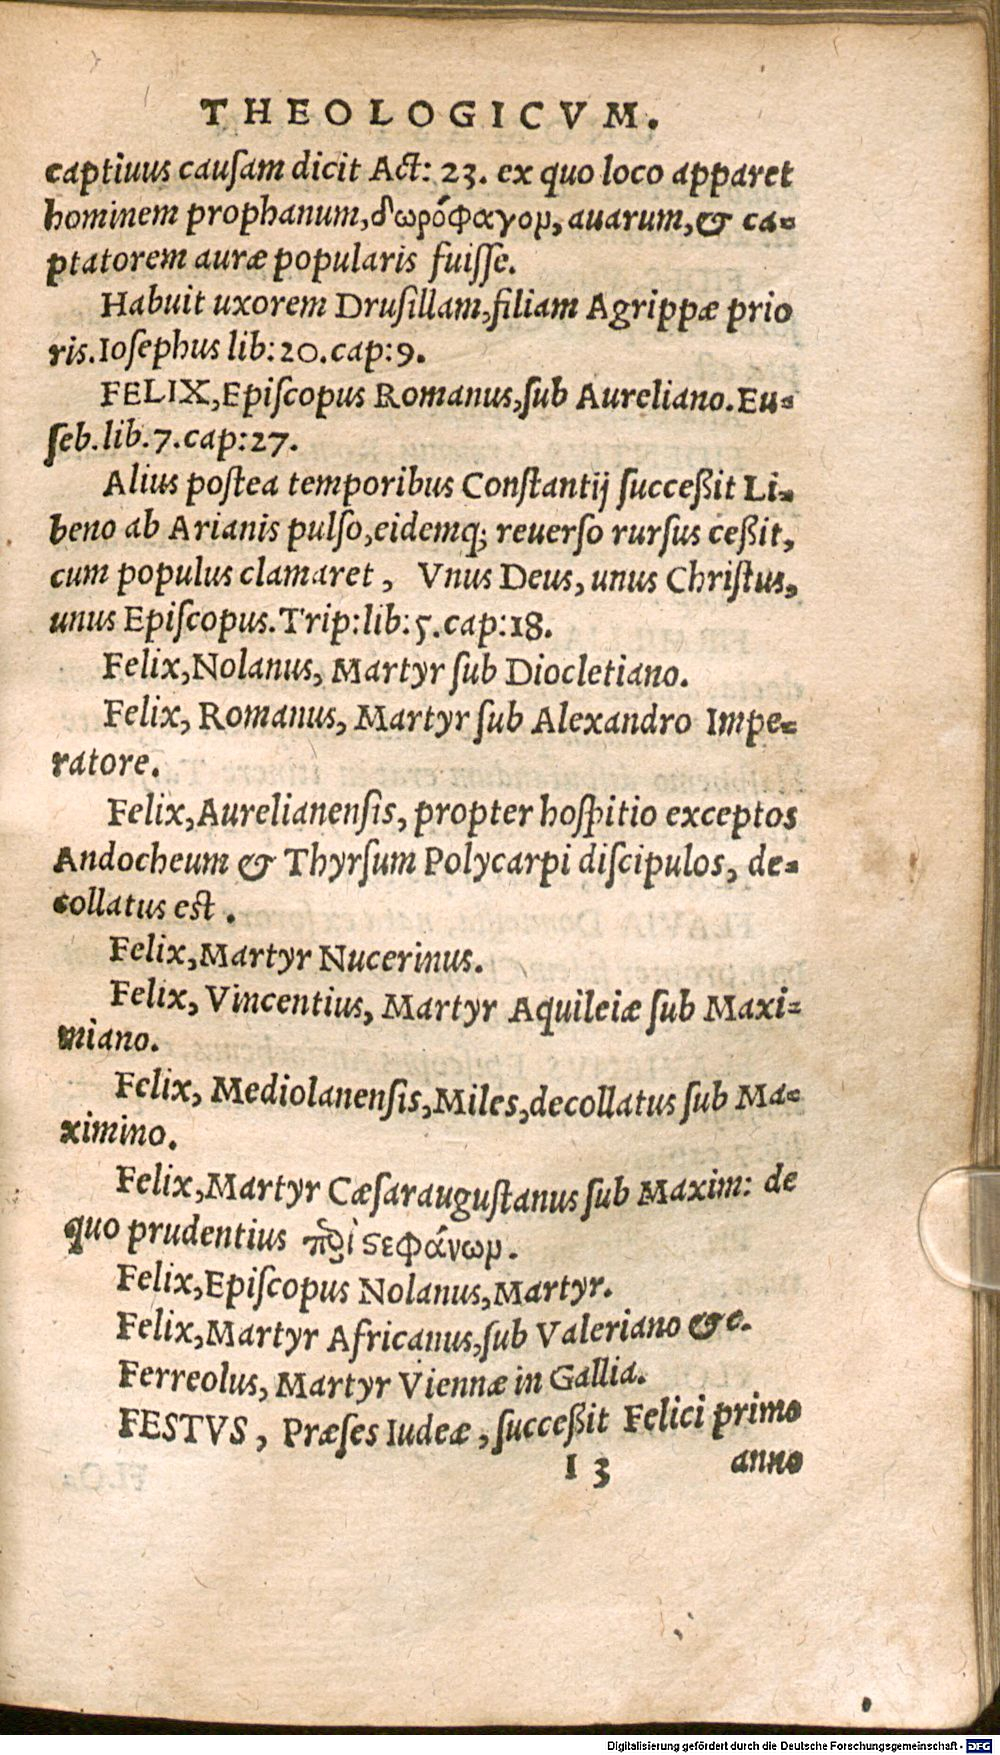 THEOLOGICVM.
captiuus cauſam dicit Act: 23. ex quo loco apparet
hominem prophanum, δωρόφαγομ, auarum, & ca-
ptatorem auræ popularis fuiſſe.
Habuit uxorem Druſillam, filiam Agrippæ prio
ris. Ioſephus lib: 20. cap: 9.
FELIX, Epiſcopus Romanus, ſub Aureliano. Eu-
ſeb. lib. 7. cap: 27.
Alius poſtea temporibus Conſtantij ſucceßit Li-
beno ab Arianis pulſo, eidemq; reuerſo rurſus ceßit,
cum populus clamaret, Vnus Deus, unus Chriſtus,
unus Epiſcopus. Trip: lib: 5. cap: 18.
Felix, Nolanus, Martyr ſub Diocletiano.
Felix, Romanus, Martyr ſub Alexandro Impe-
ratore.
Felix, Aurelianenſis, propter hoſpitio exceptos
Andocheum & Thyrſum Polycarpi diſcipulos, de-
collatus est.
Felix, Martyr Nucerinus.
Felix, Vincentius, Martyr Aquileiæ ſub Maxi-
miano.
Felix, Mediolanenſis, Miles, decollatus ſub Ma-
ximino.
Felix, Martyr Cæſarauguſtanus ſub Maxim: de
quo prudentius περὶ ςεφάνωμ.
Felix, Epiſcopus Nolanus, Martyr.
Felix, Martyr Africanus, ſub Valeriano &c.
Ferreolus, Martyr Viennæ in Gallia.
FESTVS, Præſes Iudeæ, ſucceßit Felici primo
I 3 anno
Digitalisierung gefördert durch die Deutsche Forschungsgemeinschaft - DFG